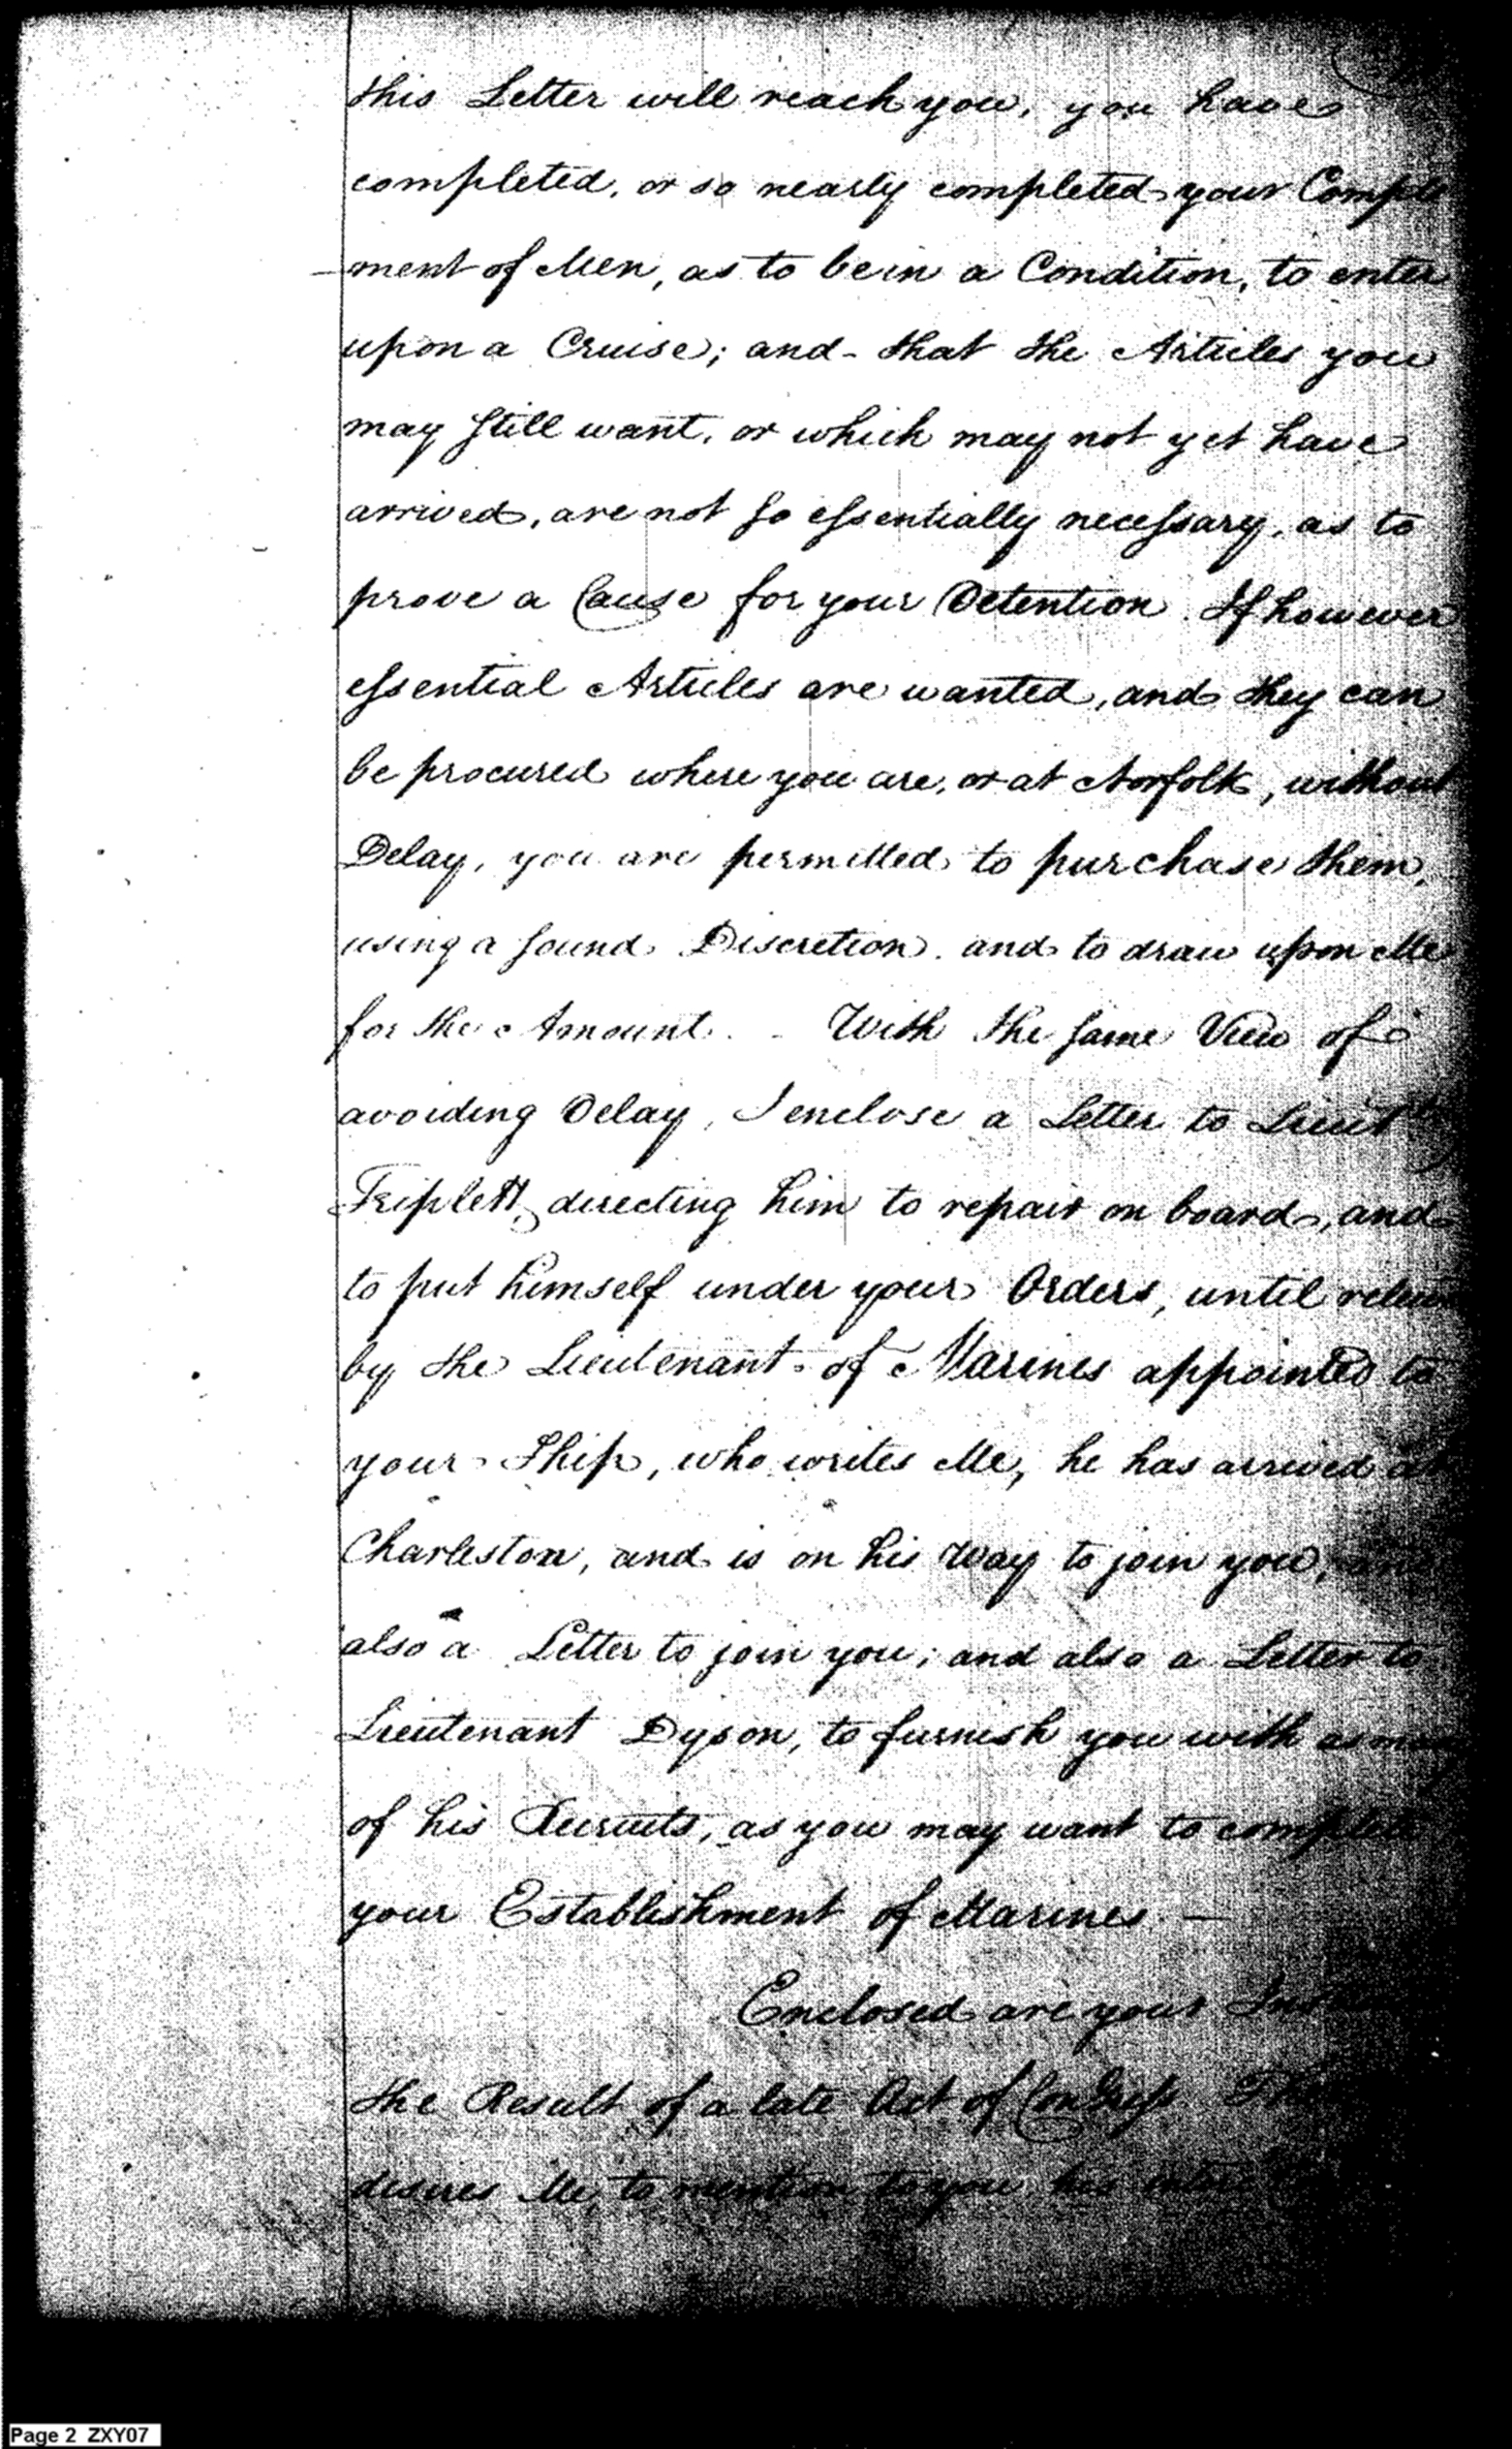 this Letter will reach you, you have
completed, or so nearly completed your Comple
-ment of Men, as to be in a Condition, to enter
upon a Cruise; and that the Articles you
may still want, or which may not yet have
arrived, are not so essentially necessary, as to
prove a Cause for your Detention. If however
essential Articles are wanted, and they can
be procured where you are, or at Norfolk, without
Delay, you are permitted to purchase them,
using a sound Discretion. and to draw upon Me
for the Amount. - With the same View of
avoiding Delay, I enclose a Letter to Lieut
Triplett, directing him to repair on board, and
to put himself under your Orders, until
by the Lieutenant of Marines appointed to
your Ship, who writes Me, he has arrived at
Charleston, and is on his way to join you,
also a Letter to join you; and also a Letter to
Lieutenant Dyson, to furnish you with as
of his Recruits, as you may want to complete
your Establishment of Marines. —
Enclosed are your
the Result of a late Act of Congress.
desires Me, to mention to you his
Page 2 ZXY07